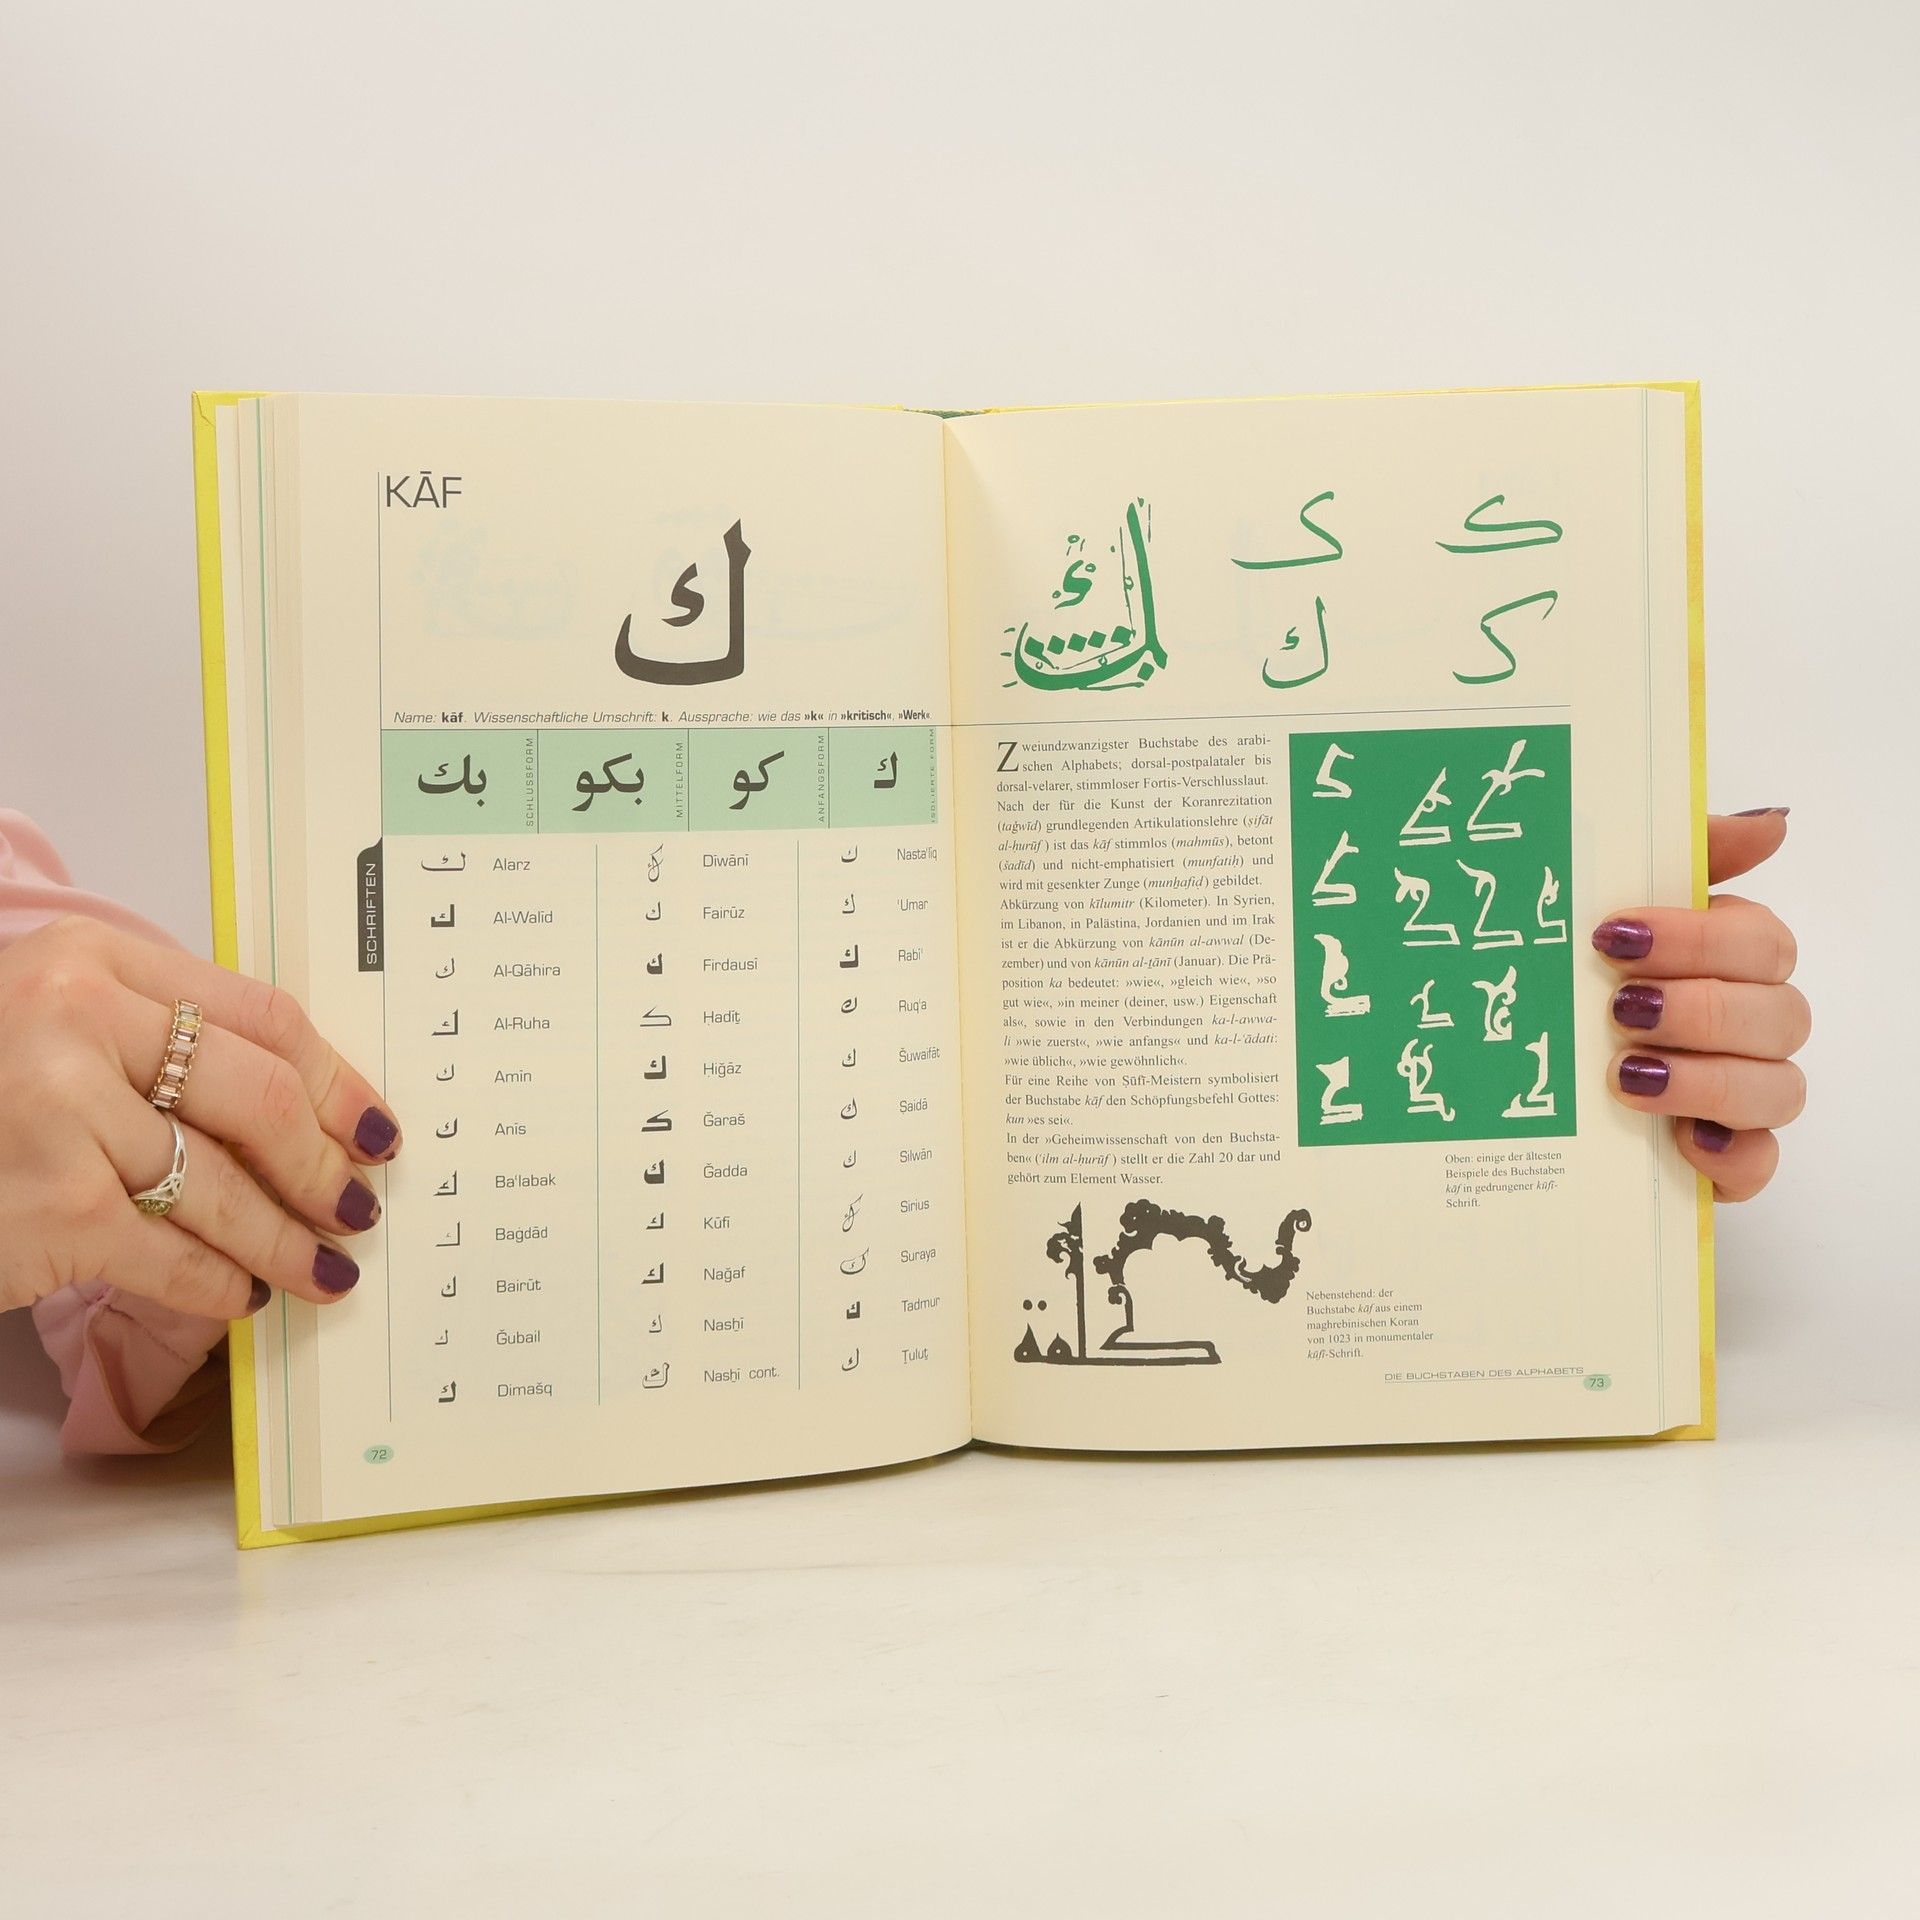 KĀF
ك
Name: kāf. Wissenschaftliche Umschrift: k. Aussprache: wie das »k« in »kritisch«, »Werk«.
بك SCHLUSSFORM بكو MITTELFORM كو ANFANGSFORM ك ISOLIERTE FORM
SCHRIFTEN
ك Alarz
ك Al-Walīd
ك Al-Qāhira
ك Al-Ruha
ك Amīn
ك Anīs
ك Ba'labak
ك Baġdād
ك Bairūt
ك Ǧubail
ك Dimašq
ك Dīwānī
ك Fairūz
ك Firdausī
ك Ḥadīṯ
ك Ḥiǧāz
ك Ǧaraš
ك Ǧadda
ك Kūfī
ك Naǧaf
ك Nasḫī
ك Nasḫī cont.
ك Nasta'līq
ك 'Umar
ك Rabī'
ك Ruq'a
ك Šuwaifāt
ك Ṣaidā
ك Silwān
ك Sirius
ك Suraya
ك Tadmur
ك Ṯuluṯ
72
ك ك
ك ك
Zweiundzwanzigster Buchstabe des arabi-
schen Alphabets; dorsal-postpalataler bis
dorsal-velarer, stimmloser Fortis-Verschlusslaut.
Nach der für die Kunst der Koranrezitation
(taǧwīd) grundlegenden Artikulationslehre (ṣifāt
al-ḥurūf) ist das kāf stimmlos (mahmūs), betont
(šadīd) und nicht-emphatisiert (munfatiḥ) und
wird mit gesenkter Zunge (munḫafiḍ) gebildet.
Abkürzung von kīlumitr (Kilometer). In Syrien,
im Libanon, in Palästina, Jordanien und im Irak
ist er die Abkürzung von kānūn al-awwal (De-
zember) und von kānūn al-ṯānī (Januar). Die Prä-
position ka bedeutet: »wie«, »gleich wie«, »so
gut wie«, »in meiner (deiner, usw.) Eigenschaft
als«, sowie in den Verbindungen ka-l-awwa-
li »wie zuerst«, »wie anfangs« und ka-l-'ādati:
»wie üblich«, »wie gewöhnlich«.
Für eine Reihe von Ṣūfī-Meistern symbolisiert
der Buchstabe kāf den Schöpfungsbefehl Gottes:
kun »es sei«.
In der »Geheimwissenschaft von den Buchsta-
ben« ('ilm al-ḥurūf) stellt er die Zahl 20 dar und
gehört zum Element Wasser.
Oben: einige der ältesten
Beispiele des Buchstaben
kāf in gedrungener kūfī-
Schrift.
Nebenstehend: der
Buchstabe kāf aus einem
maghrebinischen Koran
von 1023 in monumentaler
kūfī-Schrift.
DIE BUCHSTABEN DES ALPHABETS
73